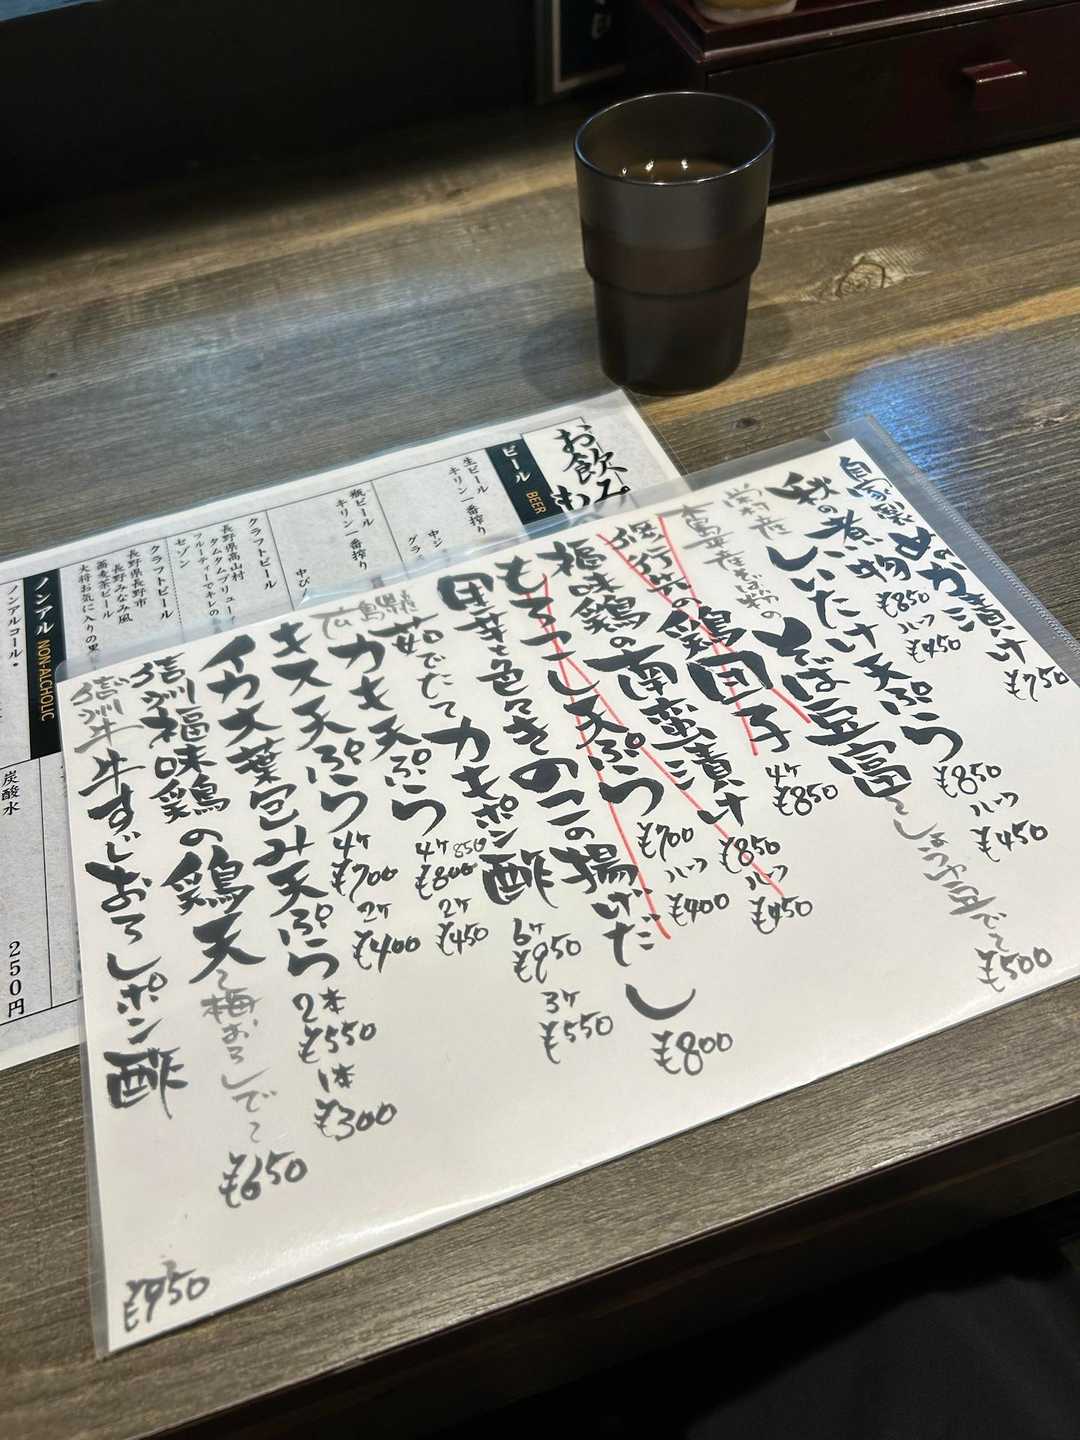 自家製ぬか漬け ¥750
秋の煮物 ¥850 ハーフ ¥450
しいたけ天ぷら ¥850 ハーフ ¥450
木島平産そば粉の
そば豆富 ¥500
鶏団子 4ケ ¥850
福味鶏の南蛮漬け ¥850 ハーフ ¥450
もろこし天ぷら ¥700 ハーフ ¥400
里芋と色々きのこの揚げだし ¥800
茹でたてカキポン酢 6ケ ¥950 3ケ ¥550
広島県産
カキ天ぷら 4ケ 850 ¥800 2ケ ¥450
キス天ぷら 4ケ ¥700 2ケ ¥400
イカ大葉包み天ぷら 2本 ¥550 1本 ¥300
信州福味鶏の鶏天 〜梅おろしで〜 ¥650
信州牛牛すじおろしポン酢 ¥950
お飲み
ビール BEER
生ビール
キリン一番搾り
中ジ
グラ
瓶ビール
キリン一番搾り
中び
クラフトビール
長野県高山村
セゾン
クラフトビール
長野県長野市
長野みなみ風
蕎麦茶ビール
大将お気に入りの黒
ノンアル NON-ALCHOLIC
ノンアルコール・
炭酸水
250円